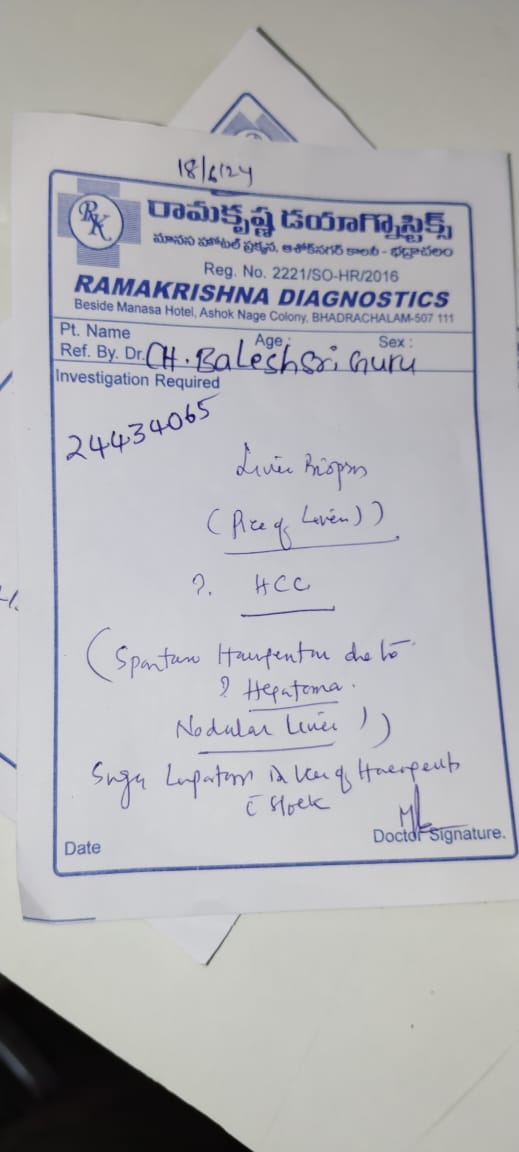 18/6/24
RK
రామకృష్ణ డయాగ్నొస్టిక్స్
మానస హోటల్ ప్రక్కన, అశోక్‌నగర్ కాలనీ - భద్రాచలం
Reg. No. 2221/SO-HR/2016
RAMAKRISHNA DIAGNOSTICS
Beside Manasa Hotel, Ashok Nage Colony, BHADRACHALAM-507 111
Pt. Name Age : Sex :
Ref. By. Dr. CH. Baleshsri Guru
Investigation Required
24434065
Liver Biopsy
?. HCC
due to
? Hepatoma.
Nodular Liver ))
Doctor Signature.
Date